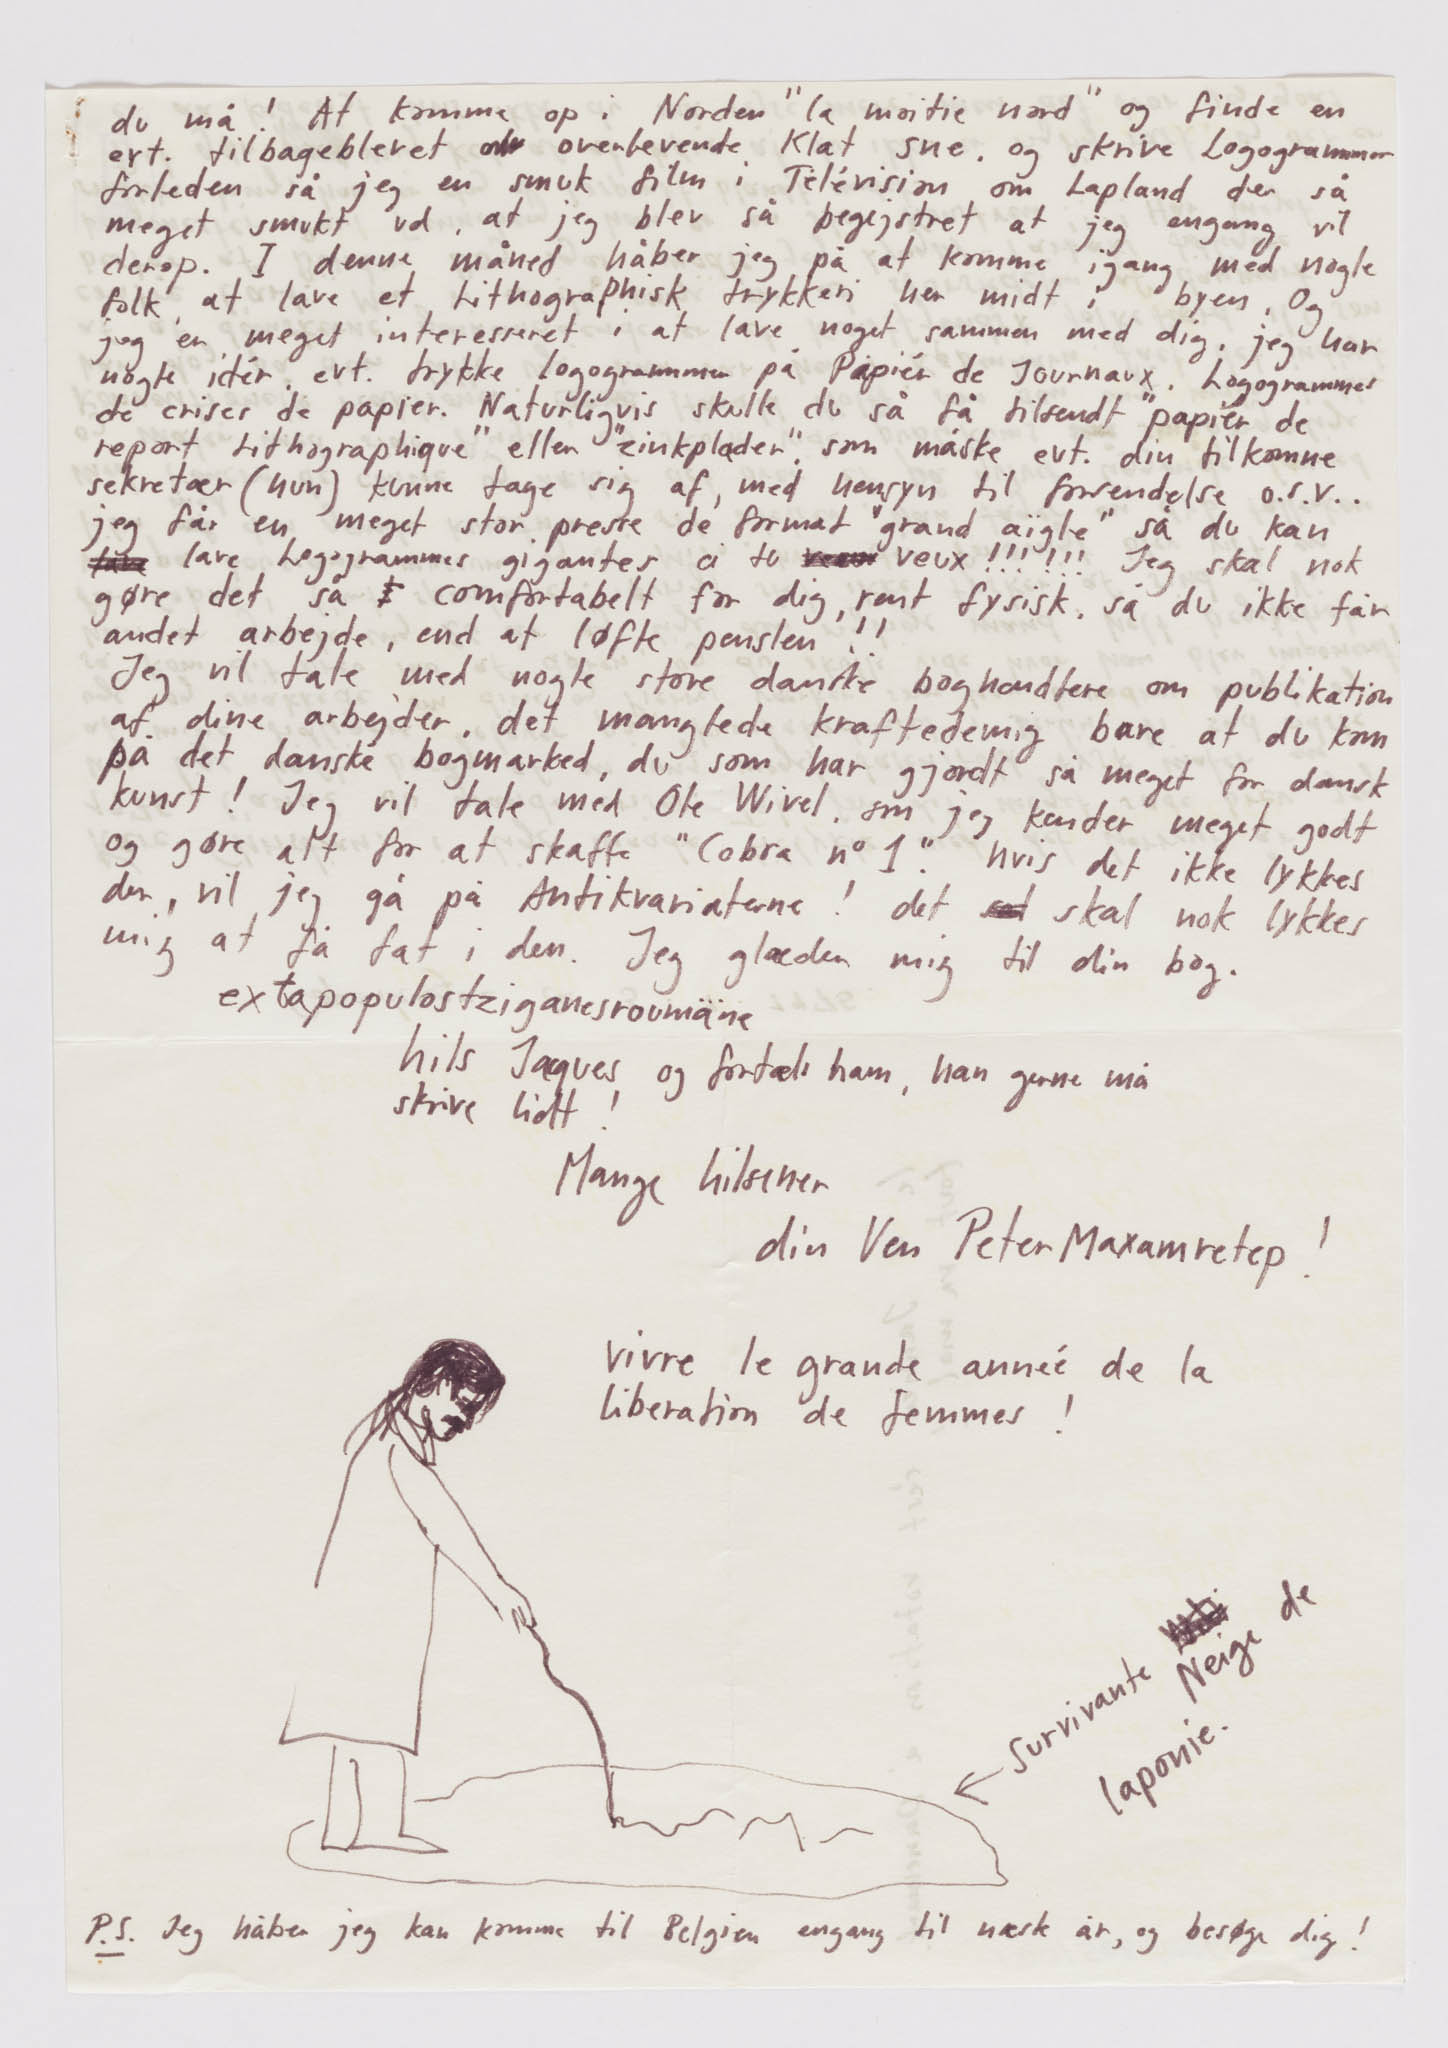 du må! At komme op i Norden "la moitie nord" og finde en
evt. tilbageblevet overlevende Klat sne. og skrive Logogrammer
forleden så jeg en smuk film i Télévision om Lapland der så
meget smukt ud, at jeg blev så begejstret at jeg engang vil
derop. I denne måned håber jeg på at komme igang med nogle
folk, at lave et Lithographisk trykkeri her midt i byen. Og
jeg er meget interesseret i at lave noget sammen med dig. jeg har
nogle idér. evt. trykke logogrammer på Papiér de Journaux. Logogrammes
de crises de papier. Naturligvis skulle du så få tilsendt "papiér de
report Lithographique" eller "zinkplader". som måske evt. din tilkomne
sekretær (hun) kunne tage sig af, med hensyn til forsendelse o.s.v..
jeg får en meget stor presse de format "grand aïgle" så du kan
lave Logogrammes gigantes ci tu veux!!!!!! Jeg skal nok
gøre det så comfortabelt for dig, rent fysisk. så du ikke får
andet arbejde, end at løfte penslen!!!
Jeg vil tale med nogle store danske boghandlere om publikation
af dine arbejder. det manglede kraftedemig bare at du kom
på det danske bogmarked, du som har gjordt så meget for dansk
kunst! Jeg vil tale med Ole Wivel. som jeg kender meget godt
og gøre alt for at skaffe "Cobra n° 1". hvis det ikke lykkes
der, vil jeg gå på Antikvariaterne! det skal nok lykkes
mig at få fat i den. Jeg glæder mig til din bog.
extapopulostziganesroumäne
hils Jaques og fortæl ham, han gerne må
skrive lidt!
Mange hilsener
din Ven Peter Maxamretep!
vivre le grande anneé de la
liberation de femmes!
← survivante Neige de
laponie.
P.S. Jeg håber jeg kan komme til Belgien engang til næste år, og besøge dig!